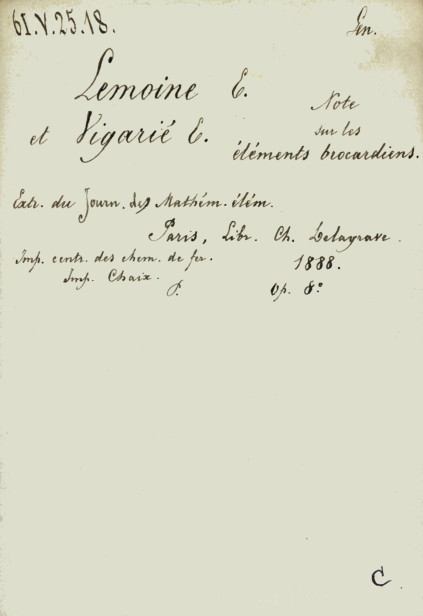 61.V.25.18. Gen.
Lemoine E.
et Vigarié E.
Note
sur les
éléments brocardiens.
Extr. du Journ. des Mathém. élém.
Paris, Libr. Ch. Delagrave.
Imp. centr. des chem. de fer.
Imp. Chaix.
1888.
P. Op. 8º
C